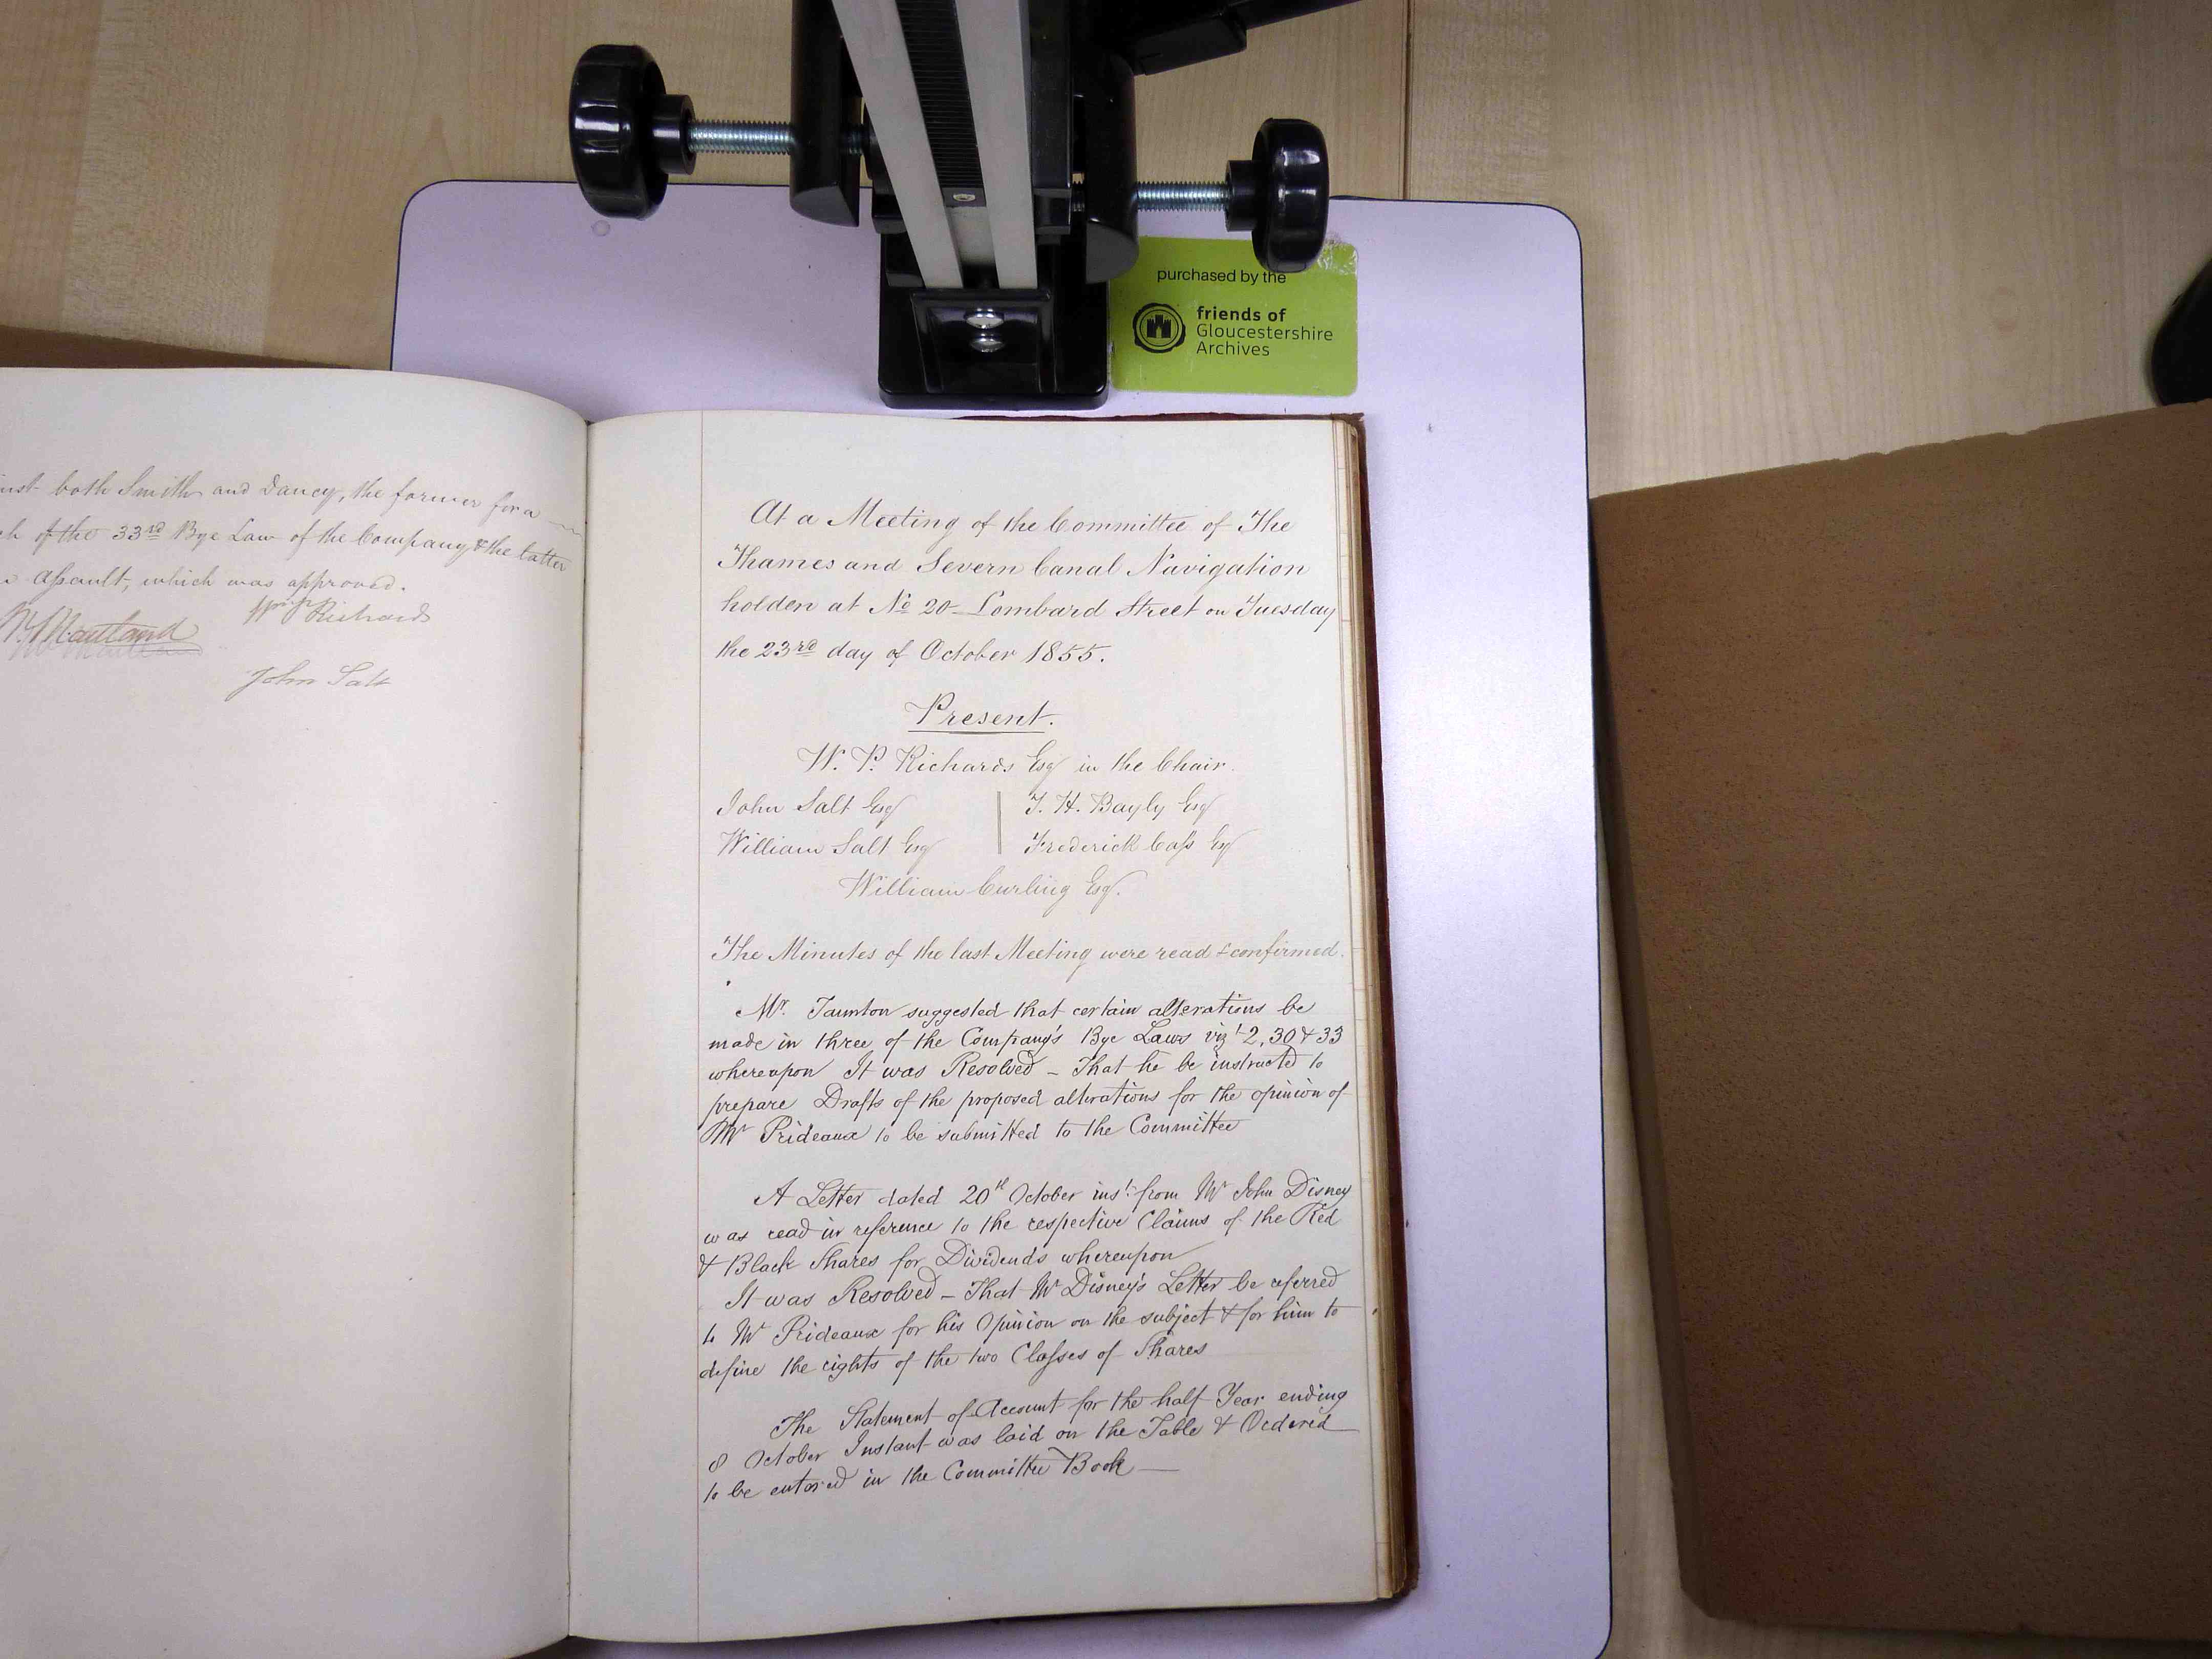 purchased by the
friends of
Gloucestershire
Archives
both Smith and Dancy, the former for a
of the 33rd Bye Law of the Company & the latter
assault, which was approved.
Wm P Richards
John Salt
At a Meeting of the Committee of The
Thames and Severn Canal Navigation
holden at No 20 Lombard Street on Tuesday
the 23rd day of October 1855.
Present.
W. P. Richards Esq in the Chair.
John Salt Esq | T. H. Bayly Esq
William Salt Esq | Frederick Cass Esq
William Curling Esq.
The Minutes of the last Meeting were read & confirmed.
Mr. Taunton suggested that certain alterations be
made in three of the Company's Bye Laws vizt 2, 30 & 33
whereupon It was Resolved – That he be instructed to
prepare Drafts of the proposed alterations for the opinion of
Mr Prideaux to be submitted to the Committee
A Letter dated 20th October inst. from Mr John Disney
was read in reference to the respective Claims of the Red
& Black Shares for Dividends whereupon
It was Resolved – That Mr Disney's Letter be referred
to Mr Prideaux for his Opinion on the subject & for him to
define the rights of the two Classes of Shares
The Statement of Account for the half Year ending
8 October Instant was laid on the Table & Ordered
to be entered in the Committee Book —